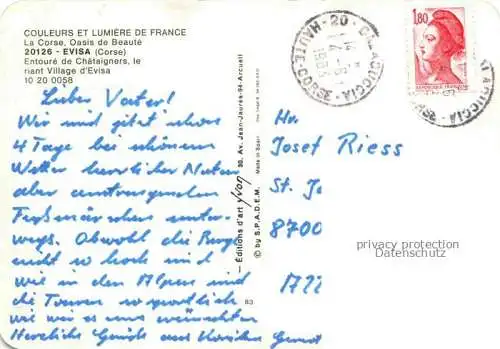 COULEURS ET LUMIÈRE DE FRANCE
La Corse, Oasis de Beauté
20126 - EVISA (Corse)
Entouré de Châtaigners, le
riant Village d'Evisa
10 20 0058
Lieber Vater!
Wir sind jetzt schon
4 Tage bei schönem
Wetter herrlicher Natur
aber anstrengenden
Fußmärschen unter-
wegs. Obwohl die Berge
nicht so hoch sind
wie in den Alpen sind
die Touren so sportlich
wie wir es uns wünschten
Herzliche Grüße aus Korsika
83
Éditions d'art yvon 30, Av. Jean-Jaurès-94-Arcueil
© by S.P.A.D.E.M. Made in Spain
20 - CALACUCCIA
HAUTE-CORSE
1,80
Hr.
Josef Riess
St. Jo
8700
privacy protection
Datenschutz